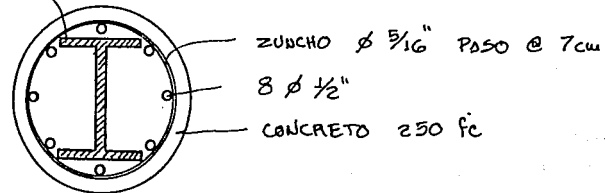 ZUNCHO Ø 5/16" PASO @ 7cm
8 Ø 1/2"
CONCRETO 250 f'c